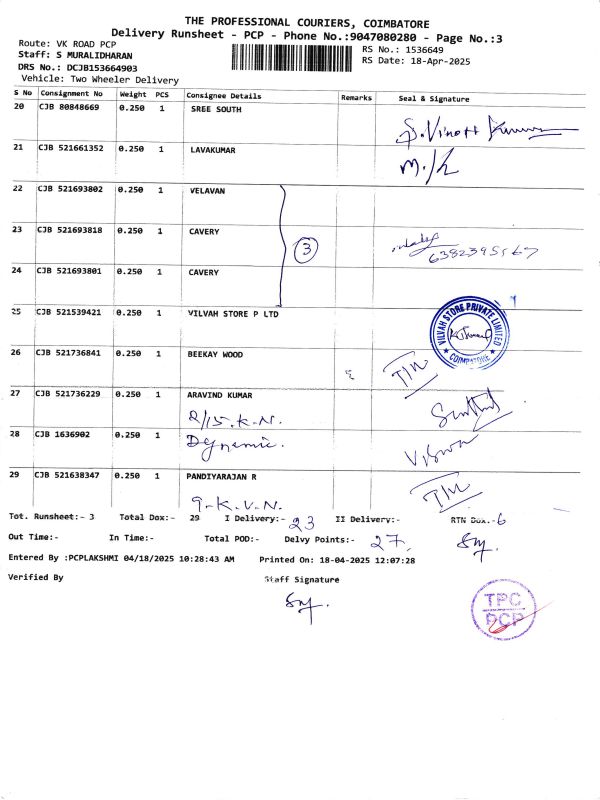 THE PROFESSIONAL COURIERS, COIMBATORE
Delivery Runsheet - PCP - Phone No.:9047080280 - Page No.:3
Route: VK ROAD PCP
Staff: S MURALIDHARAN
DRS No.: DCJB153664903
Vehicle: Two Wheeler Delivery
RS No.: 1536649
RS Date: 18-Apr-2025
S No Consignment No Weight PCS Consignee Details Remarks Seal & Signature
20 CJB 80848669 0.250 1 SREE SOUTH
21 CJB 521661352 0.250 1 LAVAKUMAR
22 CJB 521693802 0.250 1 VELAVAN
23 CJB 521693818 0.250 1 CAVERY
3
6382395567
24 CJB 521693801 0.250 1 CAVERY
25 CJB 521539421 0.250 1 VILVAH STORE P LTD
VILVAH STORE PRIVATE LIMITED
COIMBATORE
26 CJB 521736841 0.250 1 BEEKAY WOOD
27 CJB 521736229 0.250 1 ARAVIND KUMAR
2/15.K.N.
28 CJB 1636902 0.250 1 Dynamic.
29 CJB 521638347 0.250 1 PANDIYARAJAN R
9-K.V.N.
Tot. Runsheet:- 3 Total Dox:- 29 I Delivery:- 23 II Delivery:- RTN Dox.-6
Out Time:- In Time:- Total POD:- Delvy Points:- 27.
Entered By :PCPLAKSHMI 04/18/2025 10:28:43 AM Printed On: 18-04-2025 12:07:28
Verified By Staff Signature
TPC
PCP